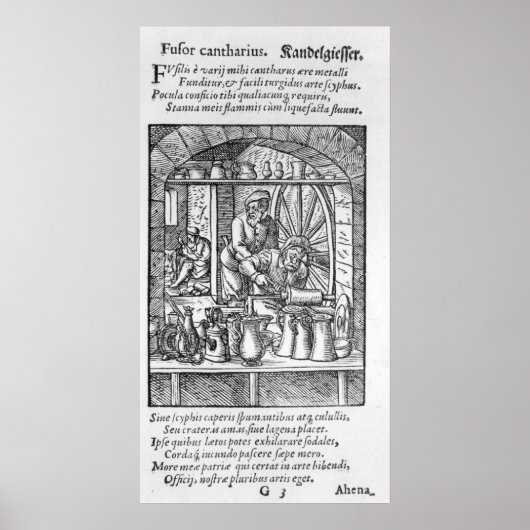 Fuſor cantharius. Kandelgieſſer.
FVſilis è varij mihi cantharus ære metalli
Funditur, & facili turgidus arte ſcyphus.
Pocula conficio tibi qualiacunq́; requiris,
Stanna meis flammis cùm liquefacta fluunt.
Siue ſcyphis caperis ſpumantibus atq́; culullis,
Seu crateras amas, ſiue lagena placet.
Ipſe quibus lætos potes exhilarare ſodales,
Cordaq́; iucundo paſcere ſæpe mero.
More meæ patriæ qui certat in arte bibendi,
Officij noſtræ pluribus artis eget.
G 3 Ahena